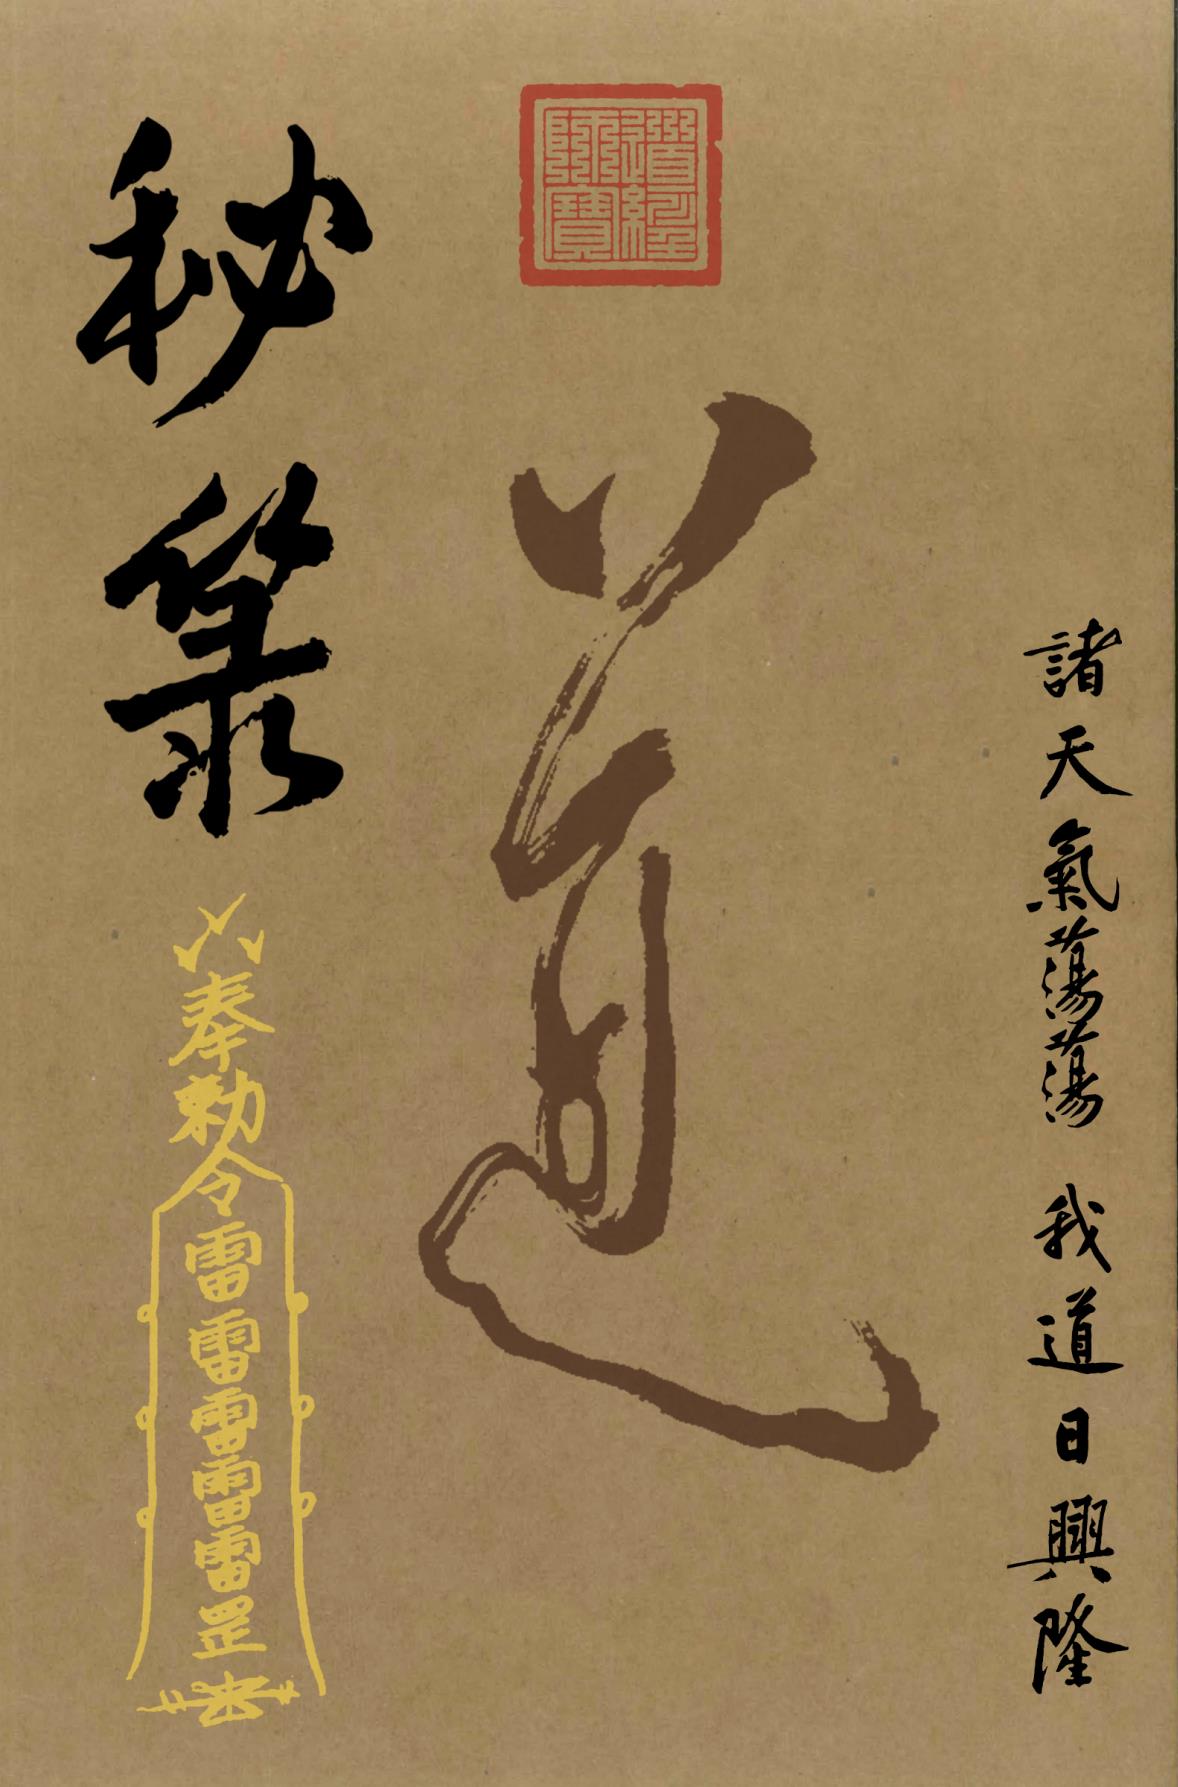 諸天氣蕩蕩 我道日興隆
道經師寶
道
秘箓
奉勅令雷雷雷雷雷罡